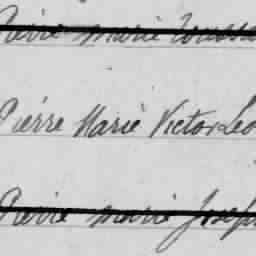 Pierre Marie
Pierre Marie Victor Léo
Pierre Marie Joseph